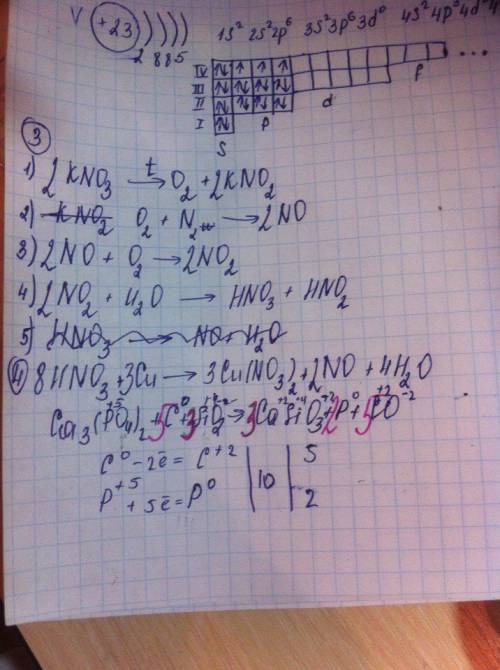 V +23 ) ) ) ) 1s² 2s²2p⁶ 3s²3p⁶3d⁰ 4s²4p³4d⁰4
2 8 8 5
IV ...
III f
II d
I p
S
3
1) 2KNO₃ t→ O₂ + 2KNO₂
2) KNO₂ O₂ + N₂ → 2NO
3) 2NO + O₂ → 2NO₂
4) 2NO₂ + H₂O → HNO₃ + HNO₂
5) HNO₃ → NO + H₂O
4) 8HNO₃ + 3Cu → 3Cu(NO₃)₂ + 2NO + 4H₂O
Ca₃(P⁺⁵O₄)₂ + 5C⁰ + 3SiO₂ → 3Ca⁺²Si⁺⁴O₃ + 2P⁰ + 5C⁺²O⁻²
C⁰ - 2ē = C⁺² | 10 | 5
P⁺⁵ + 5ē = P⁰ 2